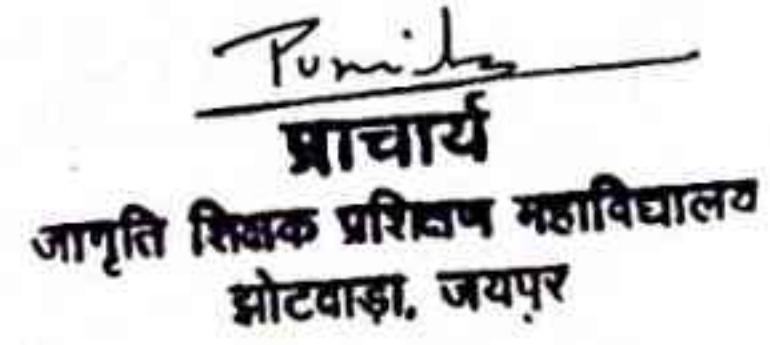 प्राचार्य
जागृति शिक्षक प्रशिक्षण महाविद्यालय
झोटवाड़ा, जयपुर